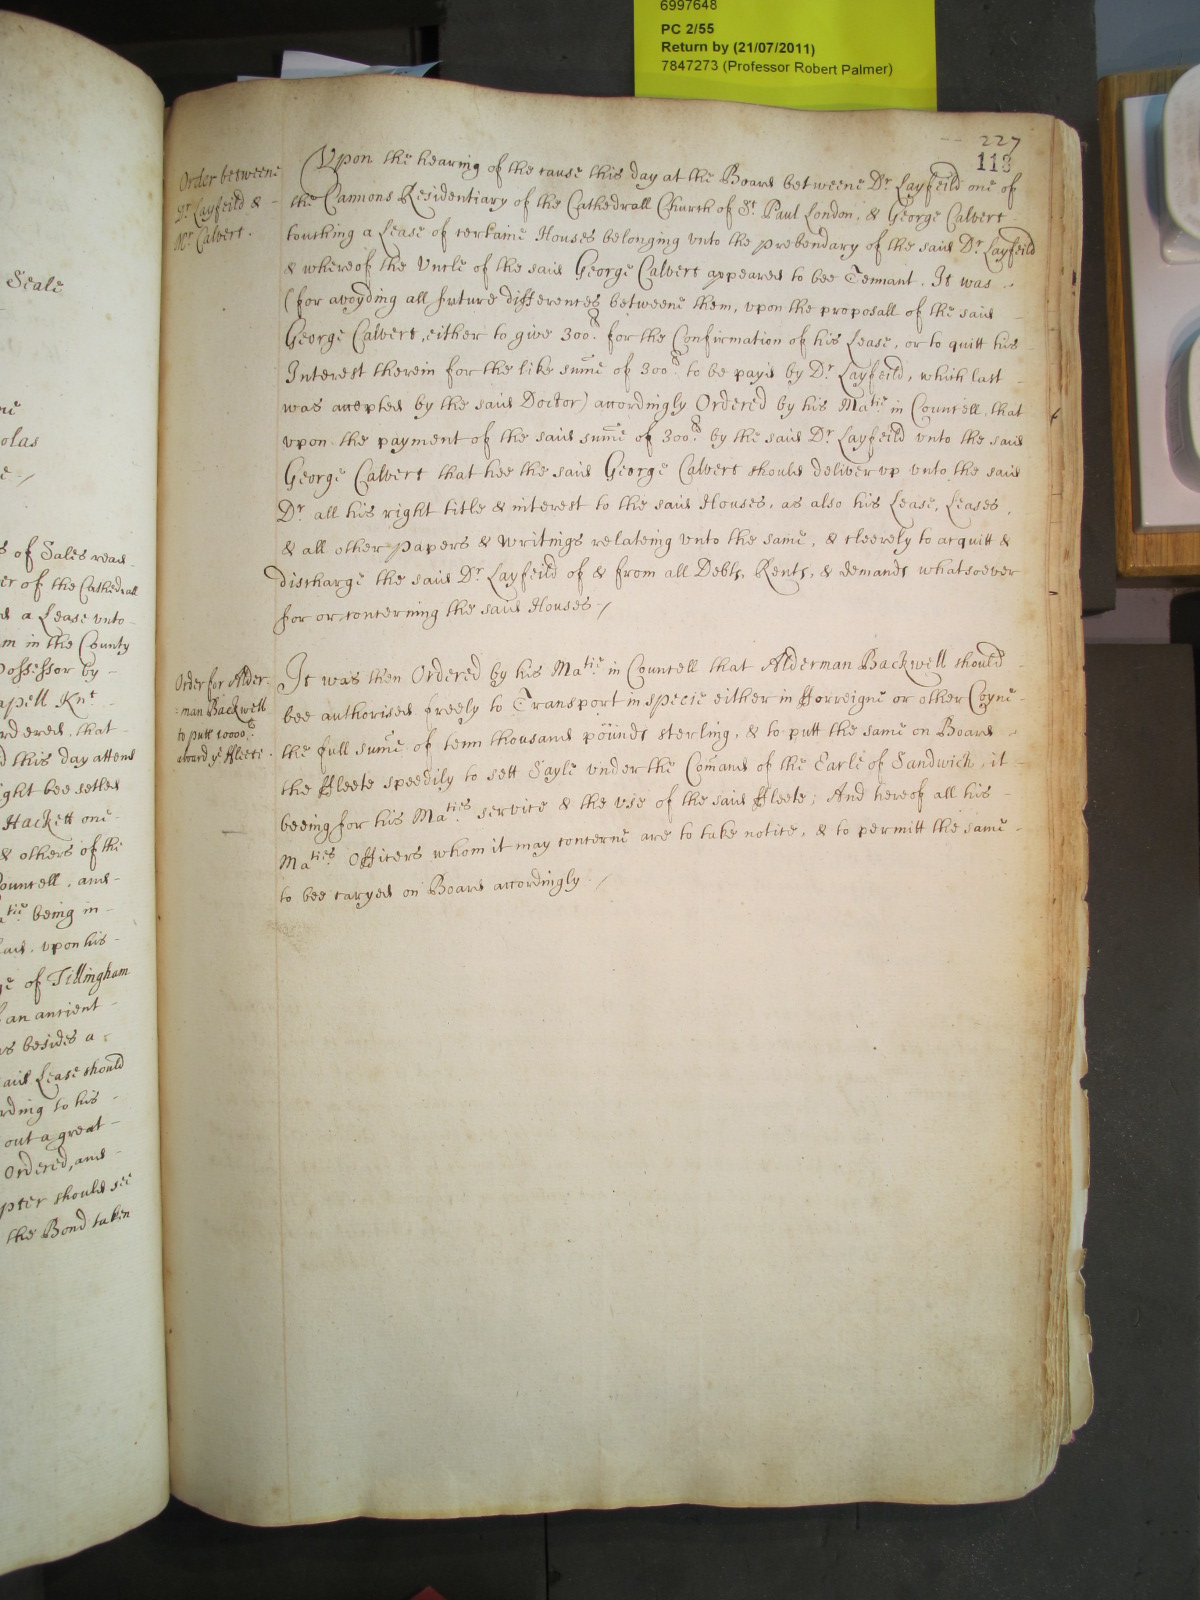 6997648
PC 2/55
Return by (21/07/2011)
7847273 (Professor Robert Palmer)
227
113
Order betweene
Dr. Layfeild &
Mr. Calvert.
Upon the hearing of the cause this day at the Board betweene Dr. Layfeild one of
the Cannons Residentiary of the Cathedrall Church of St. Paul London, & George Calvert
touching a Lease of certaine Houses belonging vnto the prebendary of the said Dr. Layfeild
& whereof the Vncle of the said George Calvert appeared to bee Tennant. It was
(for avoyding all future differences betweene them, vpon the proposall of the said
George Calvert, either to give 300l. for the Confirmation of his Lease, or to quitt his
Interest therein for the like sume of 300l. to be payd by Dr. Layfeild, which last
was accepted by the said Doctor) accordingly Ordered by his Matie. in Councell, that
vpon the payment of the said sume of 300l. by the said Dr. Layfeild vnto the said
George Calvert that hee the said George Calvert should deliver vp vnto the said
Dr. all his right title & interest to the said Houses, as also his Lease, Leases,
& all other papers & writings relateing vnto the same, & cleerely to acquitt &
discharge the said Dr. Layfeild of & from all Debts, Rents, & demands whatsoever
for or concerning the said Houses /
Order for Alder-
=man Backwell
to putt 10000l.
aboard ye ffleete.
It was then Ordered by his Matie in Councell that Alderman Backwell should
bee authorised freely to Transport in specie either in fforreigne or other Coyne
the full sume of tenn thousand pounds sterling, & to putt the same on Board
the ffleete speedily to sett Sayle vnder the Comand of the Earle of Sandwich, it
beeing for his Maties. service & the vse of the said ffleete; And hereof all his
Maties. Officers whom it may concerne are to take notice, & to permitt the same
to bee caryed on Board accordingly /
Seale
olas
s of Sales read
er of the Cathedrall
d a Lease vnto
m in the County
possessor by
apell Knt
rdered, that
d this day attend
ight bee setled
Hackett one
& others of the
ouncell, and
tie being in
said, vpon his
ge of Tillingham
f an antient
rs besides a
said Lease should
rding to his
out a great
Ordered, and
pter should see
the Bond taken